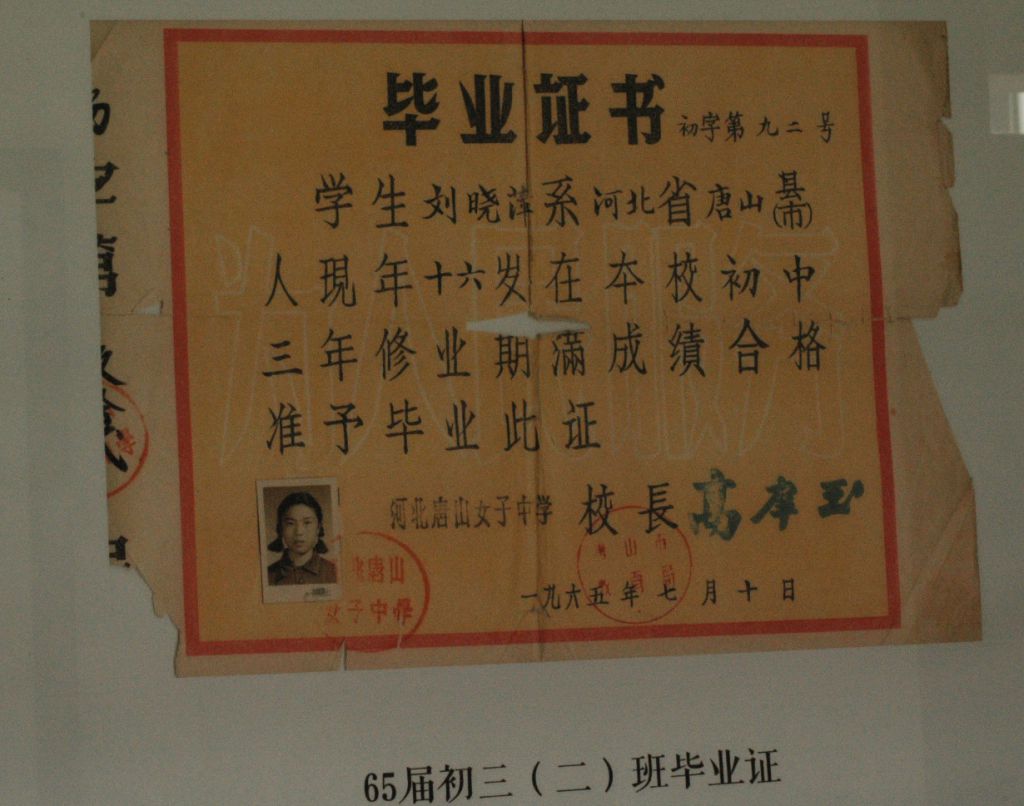 毕业证书
初字第九二号
学生刘晓萍系河北省唐山县(市)
人現年十六岁在本校初中
三年修业期滿成績合格
准予毕业此证
河北唐山女子中学 校長
唐山
女子中學
一九六五年七月十日
65届初三（二）班毕业证